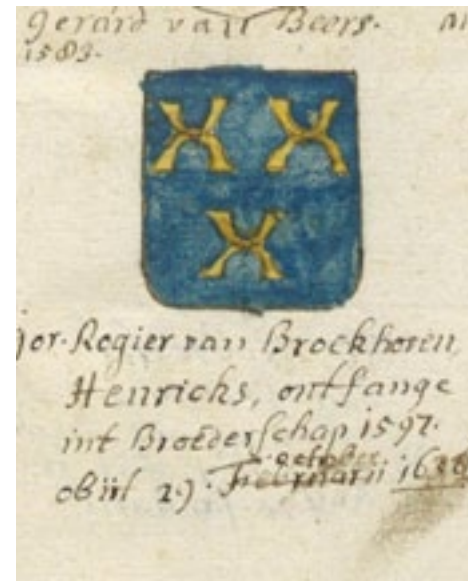 Gerard van Beers.
1583.
Jor. Rogier van Broekhoven,
Henrichs, ontfange
int Broederschap 1597.
october
obiit 29. Februarii